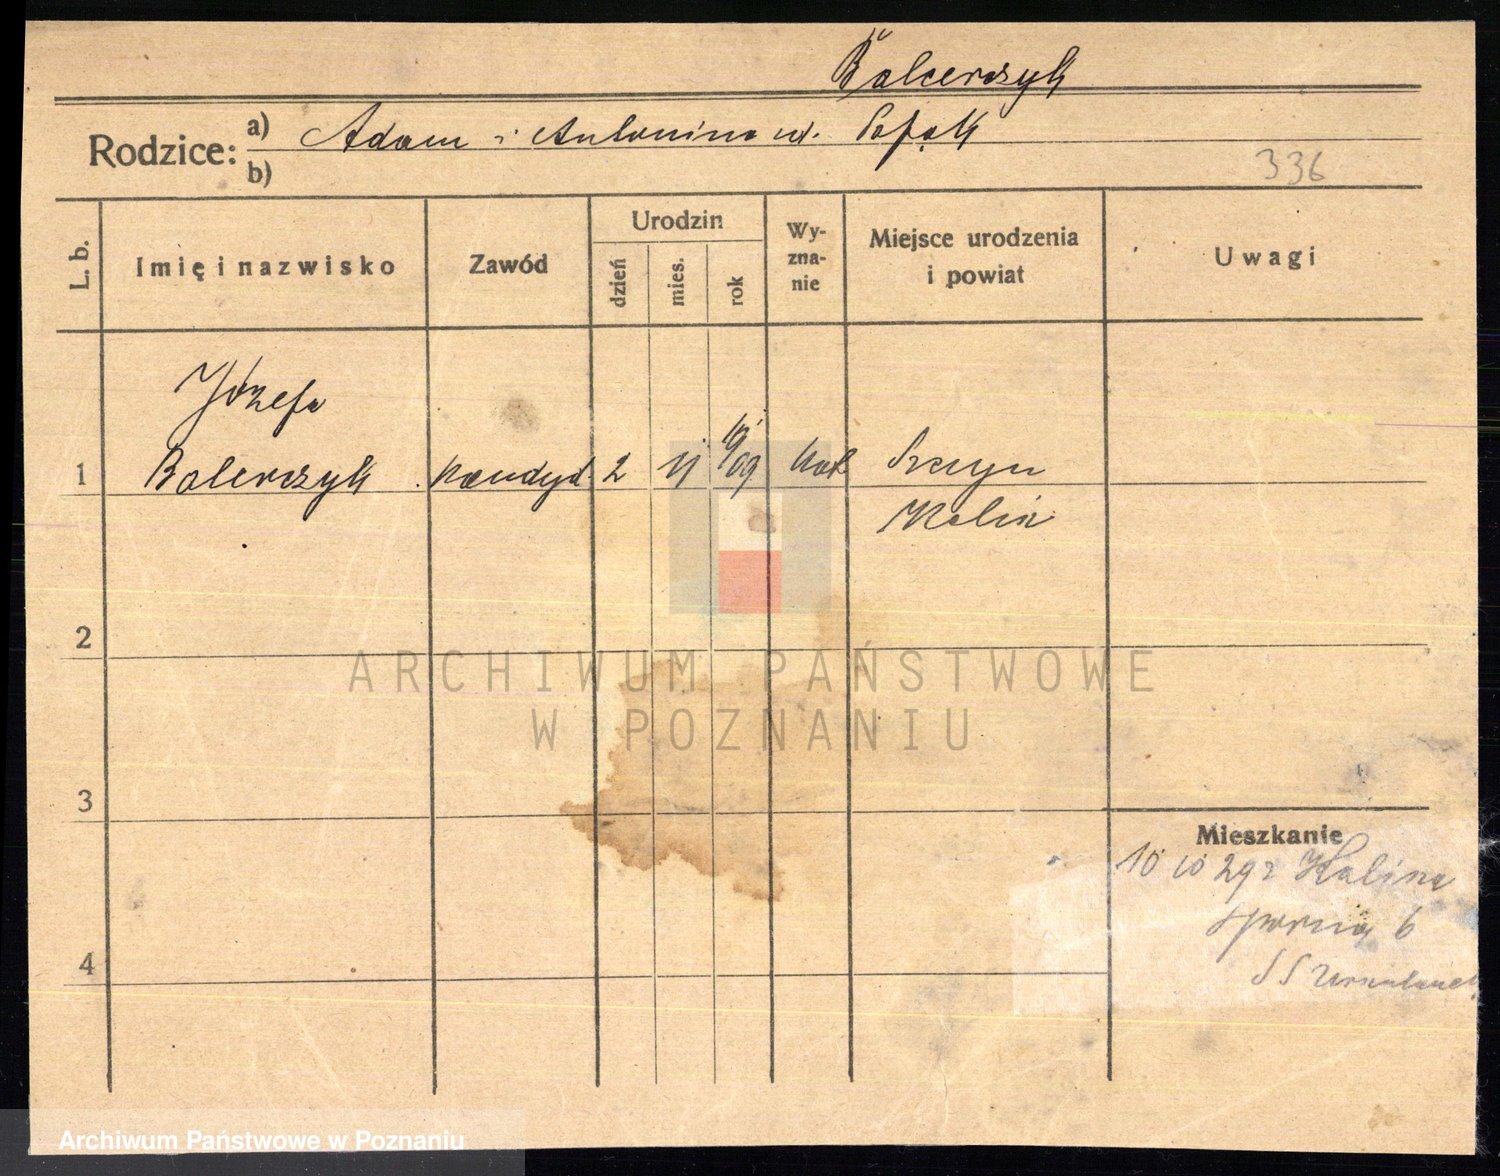 Balcerczyk
Rodzice: a) Adam i Antonina ur.
b)
336
L. b. Imię i nazwisko Zawód Urodzin dzień mies. rok Wy-zna-nie Miejsce urodzenia i powiat Uwagi
Józefa
1 Balcerczyk kandyd. 2 11 09 kat
2
3
4
Mieszkanie
10 10 29 z Kalisza
6
SS Urszulanek
ARCHIWUM PAŃSTWOWE
W POZNANIU
Archiwum Państwowe w Poznaniu